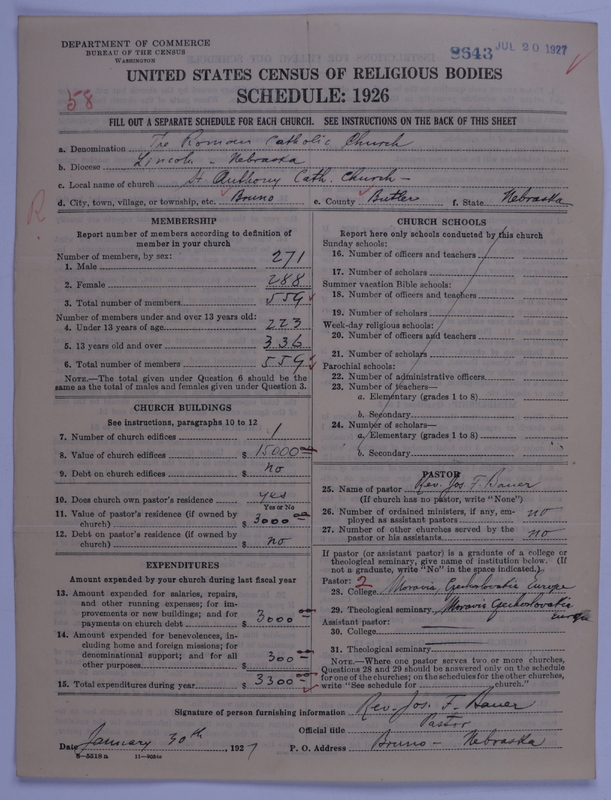 DEPARTMENT OF COMMERCE
BUREAU OF THE CENSUS
WASHINGTON
8643 JUL 20 1927
UNITED STATES CENSUS OF RELIGIOUS BODIES
58
SCHEDULE: 1926
FILL OUT A SEPARATE SCHEDULE FOR EACH CHURCH. SEE INSTRUCTIONS ON THE BACK OF THIS SHEET
a. Denomination The Roman Catholic Church
b. Diocese Lincoln - Nebraska
c. Local name of church St Anthony Cath. Church -
d. City, town, village, or township, etc. Bruno e. County Butler f. State Nebraska
R
MEMBERSHIP
Report number of members according to definition of
member in your church
Number of members, by sex:
1. Male 271
2. Female 288
3. Total number of members 559
Number of members under and over 13 years old:
4. Under 13 years of age 223
5. 13 years old and over 336
6. Total number of members 559
NOTE.—The total given under Question 6 should be the
same as the total of males and females given under Question 3.
CHURCH BUILDINGS
See instructions, paragraphs 10 to 12
7. Number of church edifices 1
8. Value of church edifices $ 15000
9. Debt on church edifices $ no
10. Does church own pastor's residence yes
Yes or No
11. Value of pastor's residence (if owned by
church) $ 3000
12. Debt on pastor's residence (if owned by
church) $ no
EXPENDITURES
Amount expended by your church during last fiscal year
13. Amount expended for salaries, repairs,
and other running expenses; for im-
provements or new buildings; and for
payments on church debt $ 3000
14. Amount expended for benevolences, in-
cluding home and foreign missions; for
denominational support; and for all
other purposes $ 300
15. Total expenditures during year $ 3300
CHURCH SCHOOLS
Report here only schools conducted by this church
Sunday schools:
16. Number of officers and teachers
17. Number of scholars
Summer vacation Bible schools:
18. Number of officers and teachers
19. Number of scholars
Week-day religious schools:
20. Number of officers and teachers
21. Number of scholars
Parochial schools:
22. Number of administrative officers
23. Number of teachers—
a. Elementary (grades 1 to 8)
b. Secondary
24. Number of scholars—
a. Elementary (grades 1 to 8)
b. Secondary
PASTOR
25. Name of pastor Rev. Jos. F. Bauer
(If church has no pastor, write "None")
26. Number of ordained ministers, if any, em-
ployed as assistant pastors no
27. Number of other churches served by the
pastor or his assistants no
If pastor (or assistant pastor) is a graduate of a college or
theological seminary, give name of institution below. (If
not a graduate, write "No" in the space indicated.)
Pastor: 2
28. College Moravis Czechoslovatia Europe
29. Theological seminary Moravis Czechoslovatia
Europe
Assistant pastor:
30. College
31. Theological seminary
NOTE.—Where one pastor serves two or more churches,
Questions 28 and 29 should be answered only on the schedule
for one of the churches; on the schedules for the other churches,
write "See schedule for church."
Signature of person furnishing information Rev. Jos. F. Bauer
Official title Pastor
Date January 30th, 1927 P. O. Address Bruno - Nebraska
8-5518a